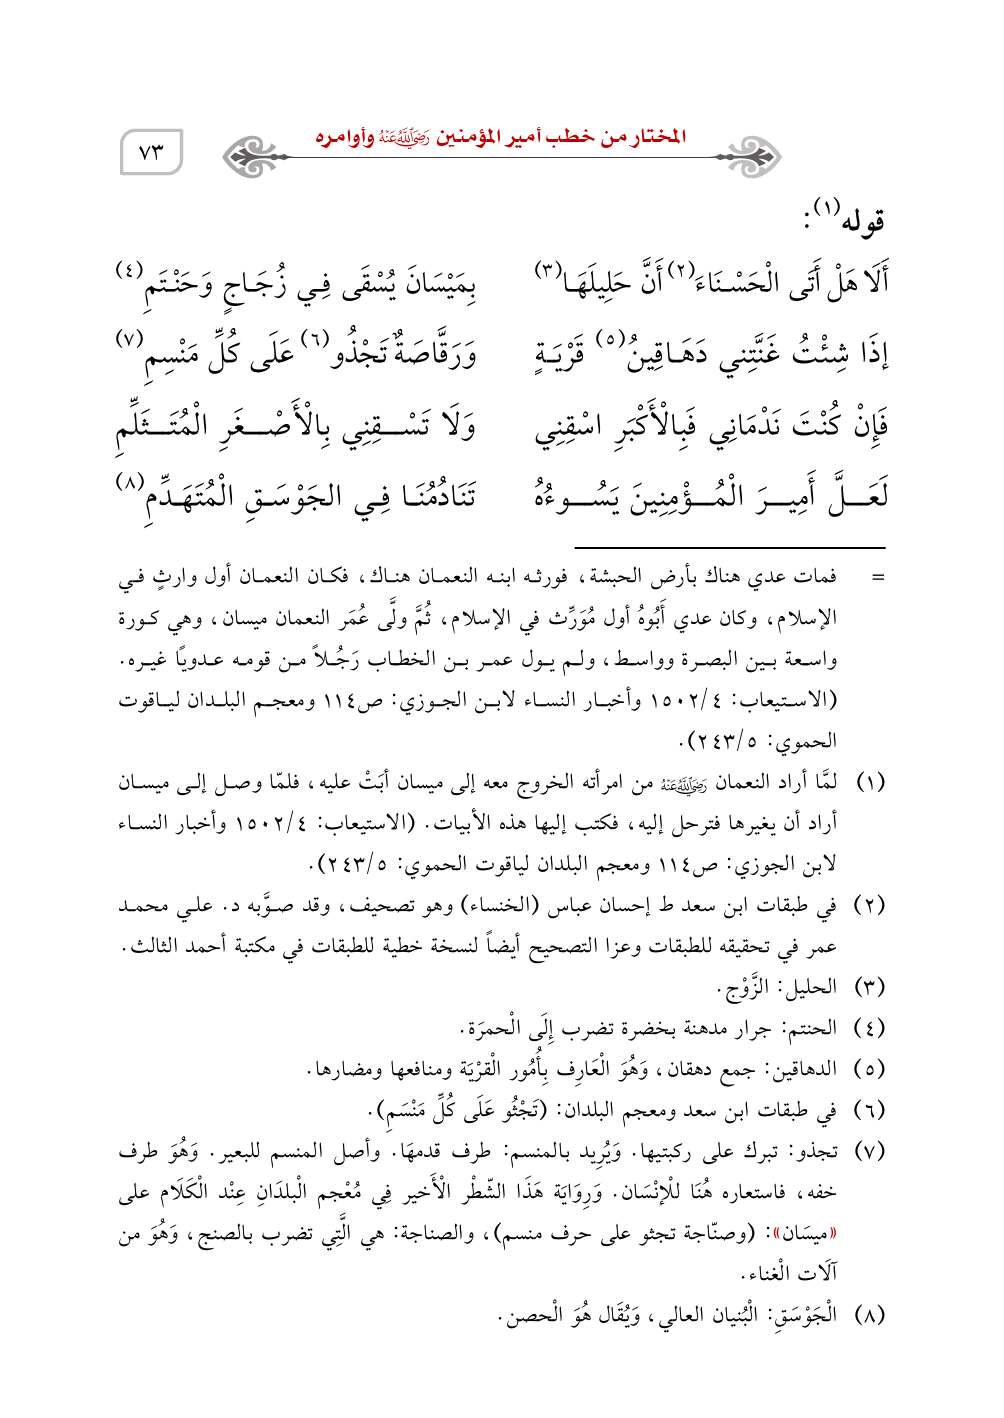 المختار من خطب أمير المؤمنين رضي الله عنه وأوامره
٧٣
قوله(١):
أَلَا هَلْ أَتَى الْحَسْنَاءَ(٢) أَنَّ حَلِيلَهَا(٣) بِمَيْسَانَ يُسْقَى فِي زُجَاجٍ وَحَنْتَمِ(٤)
إذَا شِئْتُ غَنَّتِني دَهَاقِينُ(٥) قَرْيَةٍ وَرَقَّاصَةٌ تَجْذُو(٦) عَلَى كُلِّ مَنْسِمِ(٧)
فَإِنْ كُنْتَ نَدْمَانِي فَبِالْأَكْبَرِ اسْقِنِي وَلَا تَسْقِنِي بِالْأَصْغَرِ الْمُتَثَلِّمِ
لَعَلَّ أَمِيرَ الْمُؤْمِنِينَ يَسُوءُهُ تَنَادُمُنَا فِي الجَوْسَقِ الْمُتَهَدِّمِ(٨)
= فمات عدي هناك بأرض الحبشة، فورثه ابنه النعمان هناك، فكان النعمان أول وارثٍ في
الإسلام، وكان عدي أَبُوهُ أول مُوَرِّث في الإسلام، ثُمَّ ولَّى عُمَر النعمان ميسان، وهي كورة
واسعة بين البصرة وواسط، ولم يول عمر بن الخطاب رَجُلاً من قومه عدويًا غيره.
(الاستيعاب: ١٥٠٢/٤ وأخبار النساء لابن الجوزي: ص١١٤ ومعجم البلدان لياقوت
الحموي: ٢٤٣/٥).
(١) لمَّا أراد النعمان رضي الله عنه من امرأته الخروج معه إلى ميسان أبَتْ عليه، فلمّا وصل إلى ميسان
أراد أن يغيرها فترحل إليه، فكتب إليها هذه الأبيات. (الاستيعاب: ١٥٠٢/٤ وأخبار النساء
لابن الجوزي: ص١١٤ ومعجم البلدان لياقوت الحموي: ٢٤٣/٥).
(٢) في طبقات ابن سعد ط إحسان عباس (الخنساء) وهو تصحيف، وقد صوَّبه د. علي محمد
عمر في تحقيقه للطبقات وعزا التصحيح أيضاً لنسخة خطية للطبقات في مكتبة أحمد الثالث.
(٣) الحليل: الزَّوْج.
(٤) الحنتم: جرار مدهنة بخضرة تضرب إِلَى الْحمرَة.
(٥) الدهاقين: جمع دهقان، وَهُوَ الْعَارِف بِأُمُور الْقرْيَة ومنافعها ومضارها.
(٦) في طبقات ابن سعد ومعجم البلدان: (تَجْثُو عَلَى كُلِّ مَنْسَمِ).
(٧) تجذو: تبرك على ركبتيها. وَيُرِيد بالمنسم: طرف قدمهَا. وأصل المنسم للبعير. وَهُوَ طرف
خفه، فاستعاره هُنَا للْإنْسَان. وَرِوَايَة هَذَا الشّطْر الْأَخير فِي مُعْجم الْبلدَانِ عِنْد الْكَلَام على
«ميسَان»: (وصنّاجة تجثو على حرف منسم)، والصناجة: هي الَّتِي تضرب بالصنج، وَهُوَ من
آلَات الْغناء.
(٨) الْجَوْسَقِ: الْبُنيان العالي، وَيُقَال هُوَ الْحصن.